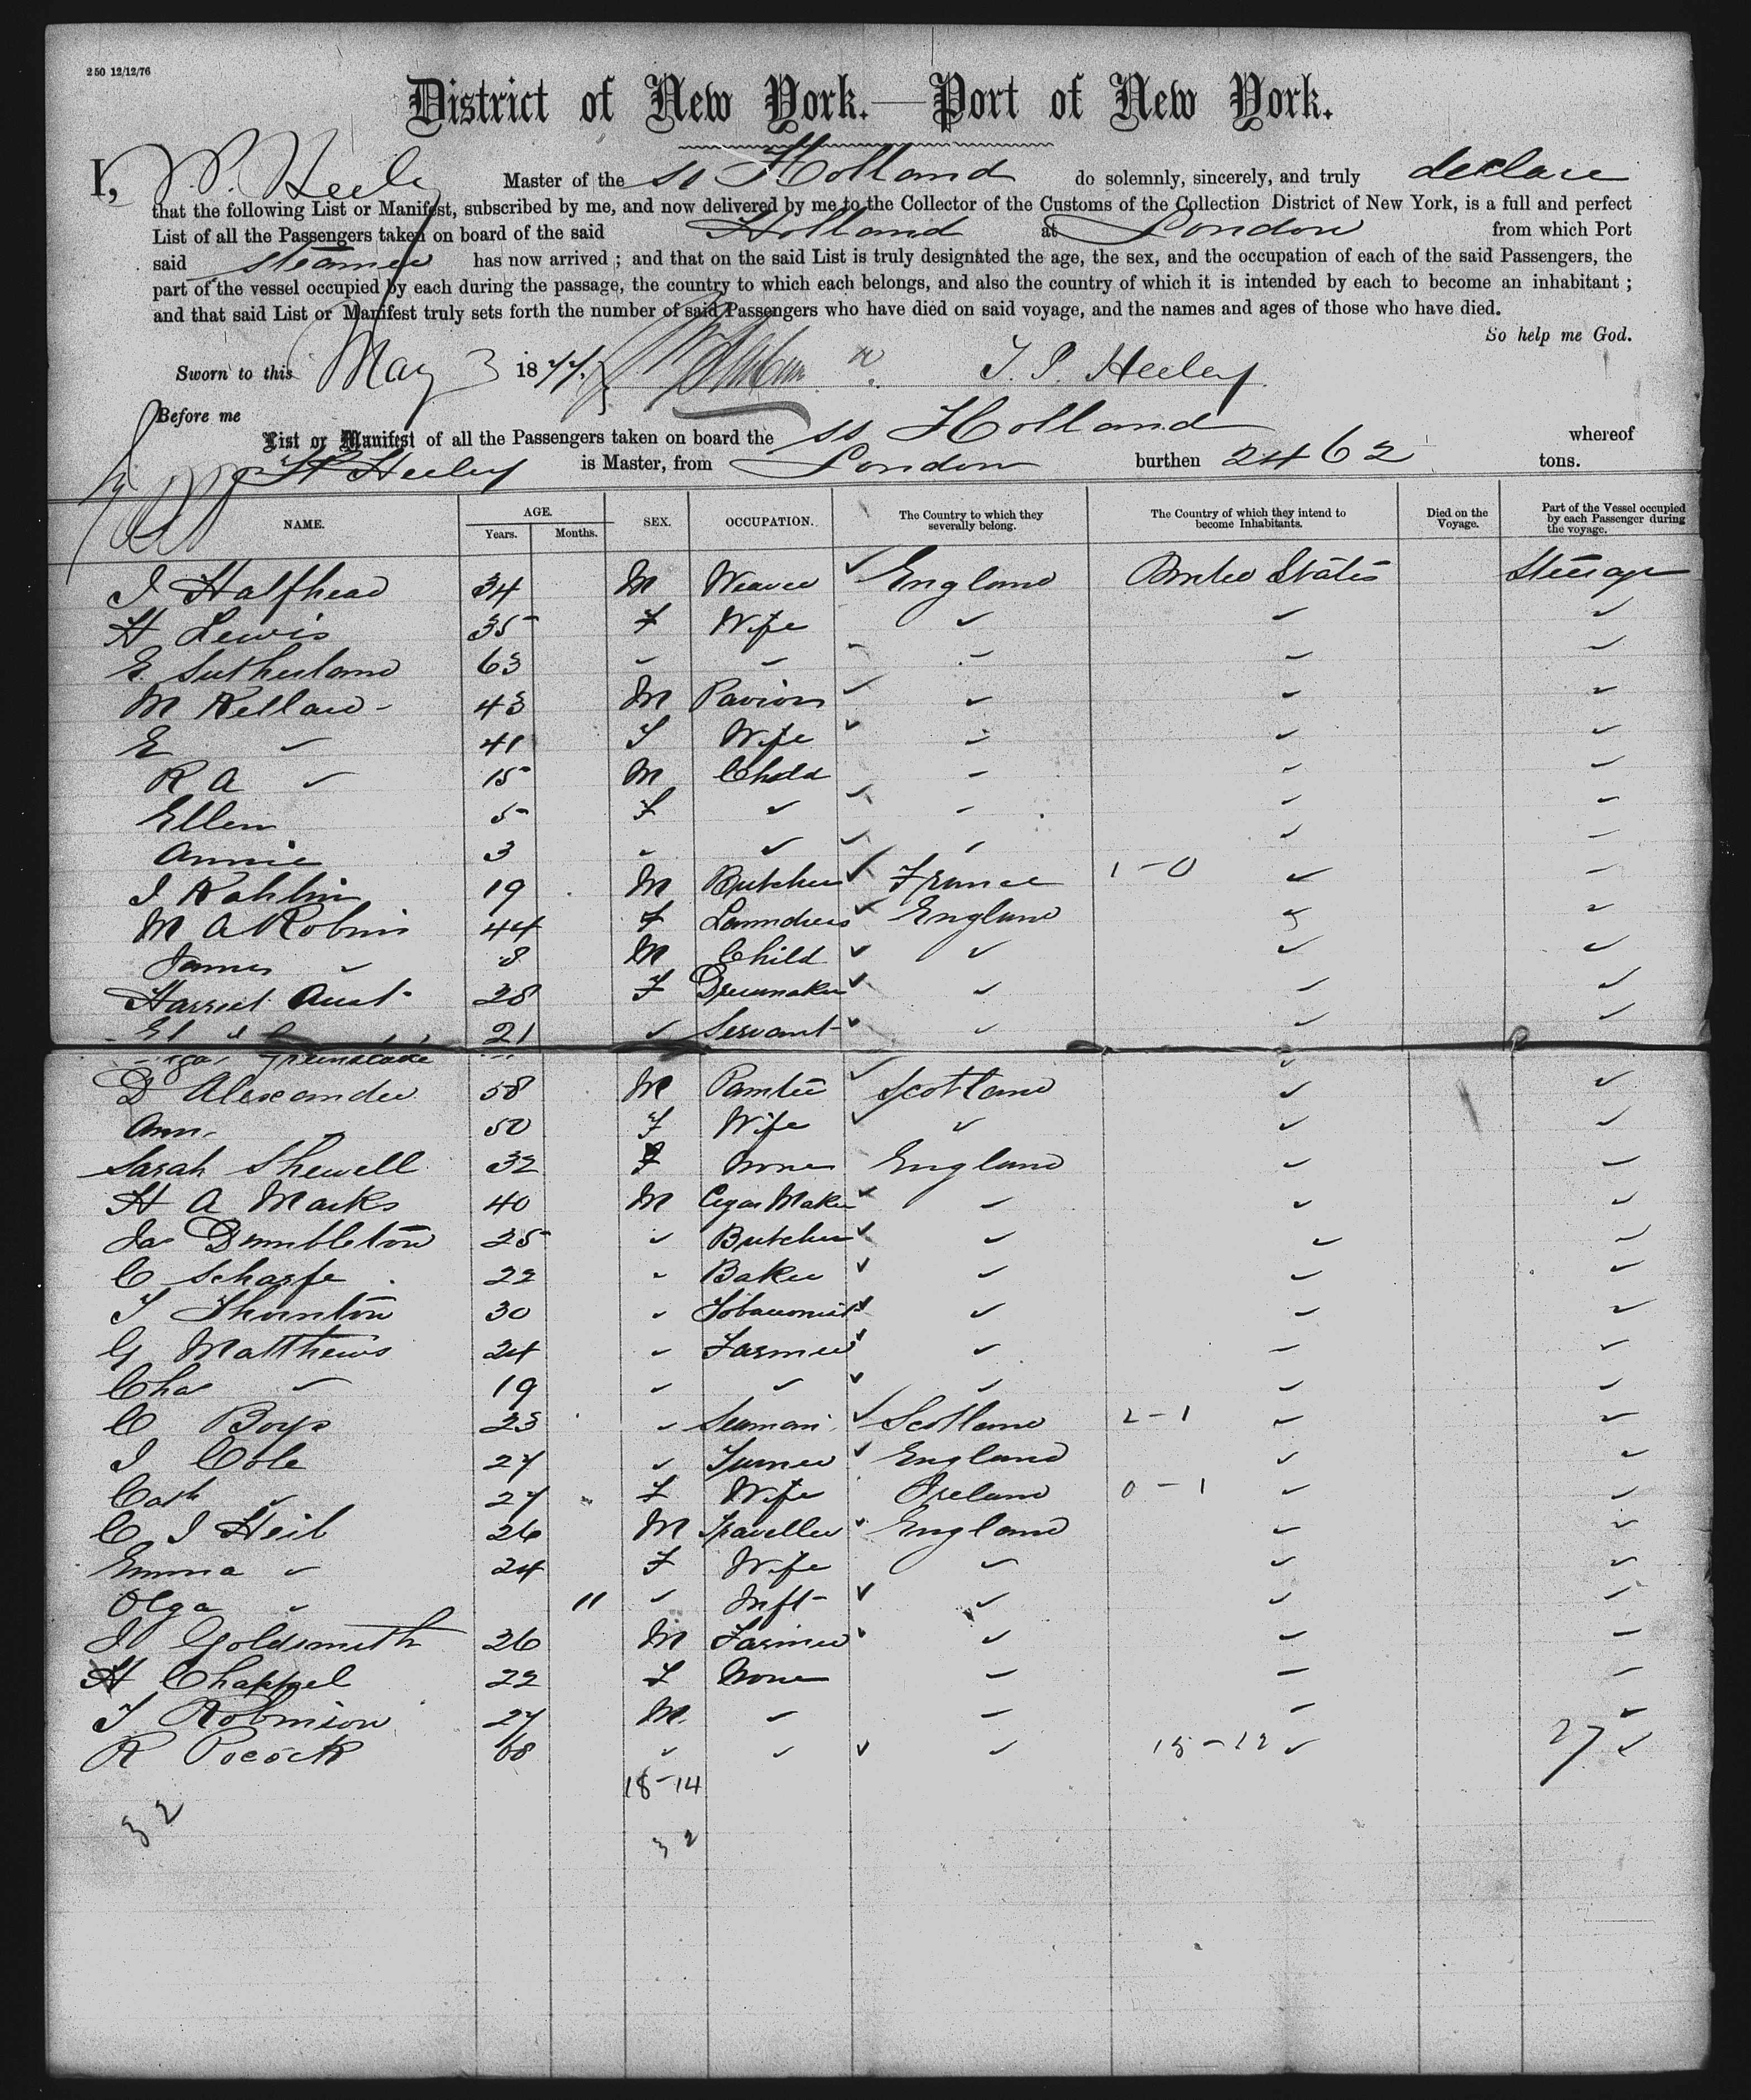 250 12/12/76
District of New York.—Port of New York.
I, J. P. Heeley Master of the ss Holland do solemnly, sincerely, and truly declare
that the following List or Manifest, subscribed by me, and now delivered by me to the Collector of the Customs of the Collection District of New York, is a full and perfect
List of all the Passengers taken on board of the said Holland at London from which Port
said steamer has now arrived ; and that on the said List is truly designated the age, the sex, and the occupation of each of the said Passengers, the
part of the vessel occupied by each during the passage, the country to which each belongs, and also the country of which it is intended by each to become an inhabitant ;
and that said List or Manifest truly sets forth the number of said Passengers who have died on said voyage, and the names and ages of those who have died.
So help me God.
Sworn to this May 3 1877. J. P. Heeley
Before me
List or Manifest of all the Passengers taken on board the ss Holland whereof
Heeley is Master, from London burthen 2462 tons.
NAME. AGE. Years. Months. SEX. OCCUPATION. The Country to which they severally belong. The Country of which they intend to become Inhabitants. Died on the Voyage. Part of the Vessel occupied by each Passenger during the voyage.
J Halfhead 34 M Weaver England United States Steerage
H Lewis 35 F Wife ✓ ✓ ✓
E. Sutherland 63 ✓ ✓ ✓ ✓ ✓
M Kellaw 43 M Pavior ✓ ✓ ✓
E ✓ 41 F Wife ✓ ✓ ✓
R A ✓ 15 M Child ✓ ✓ ✓
Ellen 5 F ✓ ✓ ✓ ✓
Annie 3 ✓ ✓ ✓ ✓ ✓
J 19 M Butcher France 1-0 ✓ ✓
M A Robins 44 F Laundress England ✓ ✓
James ✓ 8 M Child ✓ ✓ ✓
Harriet Aust 28 F Dressmaker ✓ ✓ ✓
21 ✓ Servant ✓ ✓ ✓
Greenslade
D Alexander 58 M Painter Scotland ✓ ✓
Ann 50 F Wife ✓ ✓ ✓
Sarah Shewell 32 F None England ✓ ✓
H A Marks 40 M Cigar Maker ✓ ✓ ✓
Jas Dumbleton 25 ✓ Butcher ✓ ✓ ✓
C Scharfe 22 ✓ Baker ✓ ✓ ✓
T Thornton 30 ✓ Tobacconist ✓ ✓ ✓
G Matthews 24 ✓ Farmer ✓ ✓ ✓
Chas ✓ 19 ✓ ✓ ✓ ✓ ✓
C Boys 23 ✓ Seaman Scotland 2-1 ✓ ✓
J Cole 27 ✓ Turner England ✓ ✓
Cath ✓ 27 F Wife Ireland 0-1 ✓ ✓
C J Heil 26 M Traveller England ✓ ✓
Emma ✓ 24 F Wife ✓ ✓ ✓
Olga ✓ 11 ✓ Inft ✓ ✓ ✓
J Goldsmith 26 M Farmer ✓ ✓ ✓
H Chappel 22 F None ✓ ✓ ✓
T Robinson 27 M. ✓ ✓ ✓ ✓
R Pocock 68 ✓ ✓ ✓ 15-12 ✓ 27 ✓
18-14
32
32